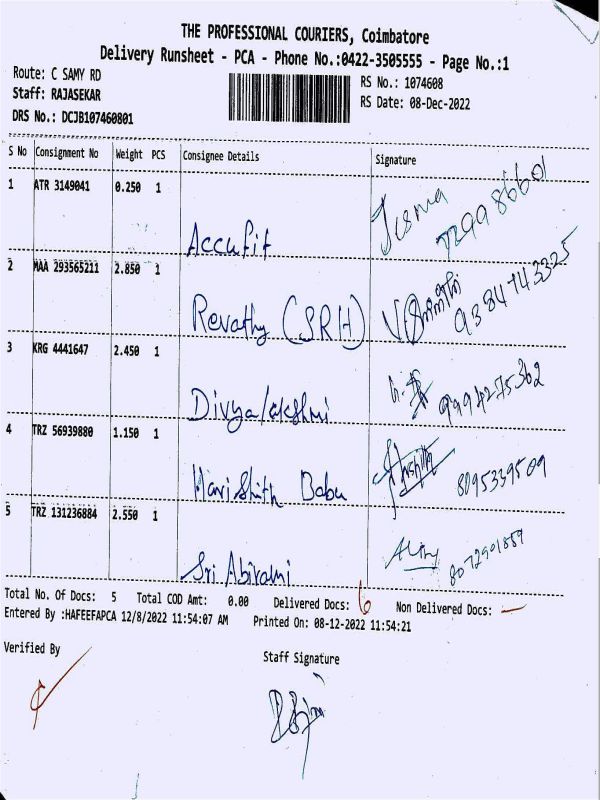 THE PROFESSIONAL COURIERS, Coimbatore
Delivery Runsheet - PCA - Phone No.:0422-3505555 - Page No.:1
Route: C SAMY RD
RS No.: 1074608
Staff: RAJASEKAR
RS Date: 08-Dec-2022
DRS No.: DCJB107460801
S No Consignment No Weight PCS Consignee Details Signature
1 ATR 3149041 0.250 1
Accufit
2 MAA 293565211 2.850 1
Revathy (SRH) 9384743325
3 KRG 4441647 2.450 1
Divyalakshmi
4 TRZ 56939880 1.150 1
Harishith Babu 8095339509
5 TRZ 131236884 2.550 1
Sri Abirami
Total No. Of Docs: 5 Total COD Amt: 0.00 Delivered Docs: 6 Non Delivered Docs: —
Entered By :HAFEEFAPCA 12/8/2022 11:54:07 AM Printed On: 08-12-2022 11:54:21
Verified By
Staff Signature